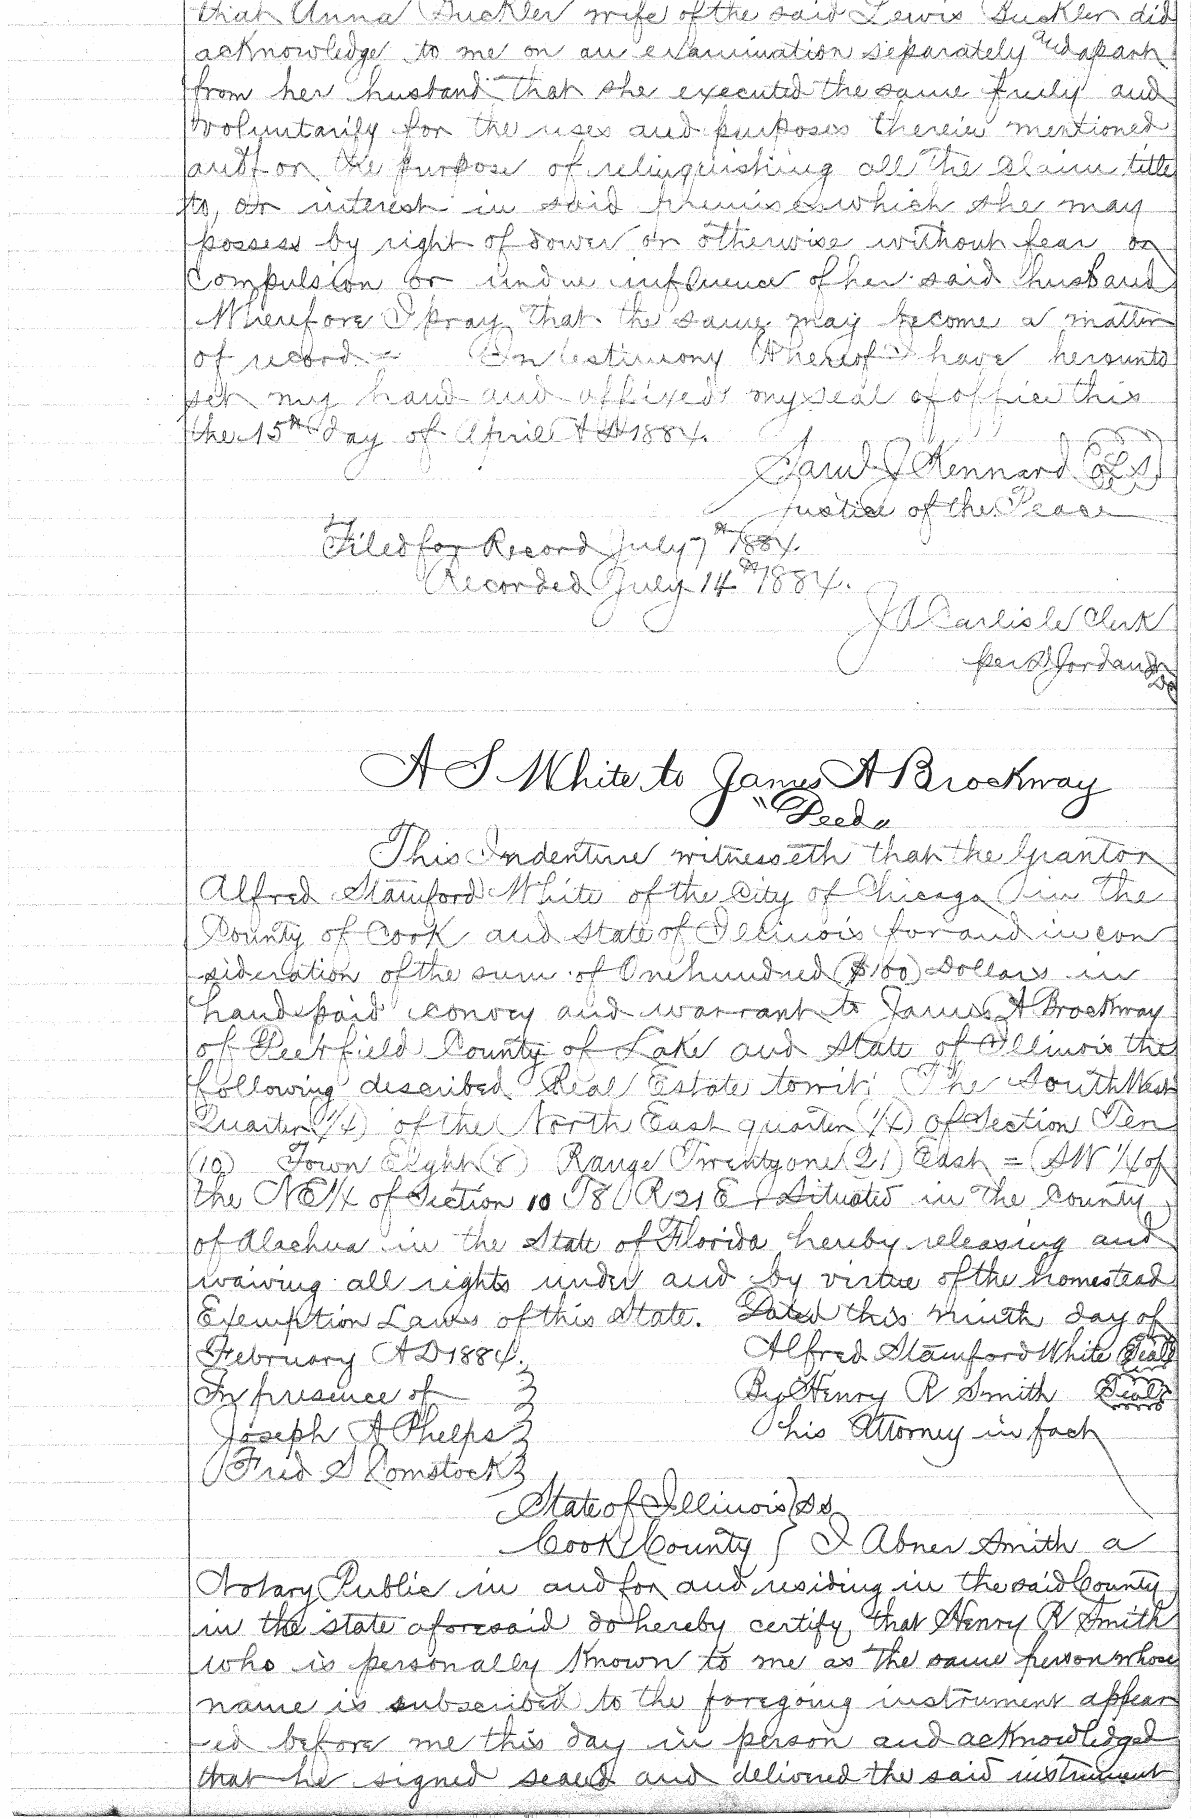 that Anna Buckler wife of the said Lewis Buckler did
acknowledge to me on an examination separately and apart
from her husband that she executed the same freely and
voluntarily for the uses and purposes therein mentioned
and for the purpose of relinquishing all the claim title
to, or interest in said premises which she may
possess by right of dower or otherwise without fear or
compulsion or undue influence of her said husband
Wherefore I pray that the same may become a matter
of record = In testimony Whereof I have hereunto
set my hand and affixed my seal of office this
the 15th day of April A D 1884.
Saml J Kennard L S
Justice of the Peace
Filed for Record July 7th 1884.
Recorded July 14th 1884.
J A Carlisle Clerk
per S Jordan DC
A S White to James A Brockway
"Deed"
This Indenture witnesseth that the Grantor
Alfred Stamford White of the City of Chicago in the
County of Cook and State of Illinois for and in con
sideration of the sum of One hundred ($100) Dollars in
hand paid convey and warrant to James A Brockway
of Deerfield County of Lake and State of Illinois the
following described Real Estate towit: The South West
Quarter (1/4) of the North East quarter (1/4) of Section Ten
(10) Town Eight (8) Range Twenty one (21) East = (SW 1/4 of
the NE 1/4 of Section 10 T8 R21 E, Situated in the County
of Alachua in the State of Florida hereby releasing and
waiving all rights under and by virtue of the homestead
Exemption Laws of this State. Dated this ninth day of
February A D 1884. Alfred Stamford White Seal
In presence of By Henry R Smith Seal
Joseph A Phelps his Attorney in fact
Fred S Comstock
State of Illinois } ss
Cook County } I Abner Smith a
Notary Public in and for and residing in the said County
in the state aforesaid do hereby certify that Henry R Smith
who is personally known to me as the same person whose
name is subscribed to the foregoing instrument appear
-ed before me this day in person and acknowledged
that he signed sealed and delivered the said instrument